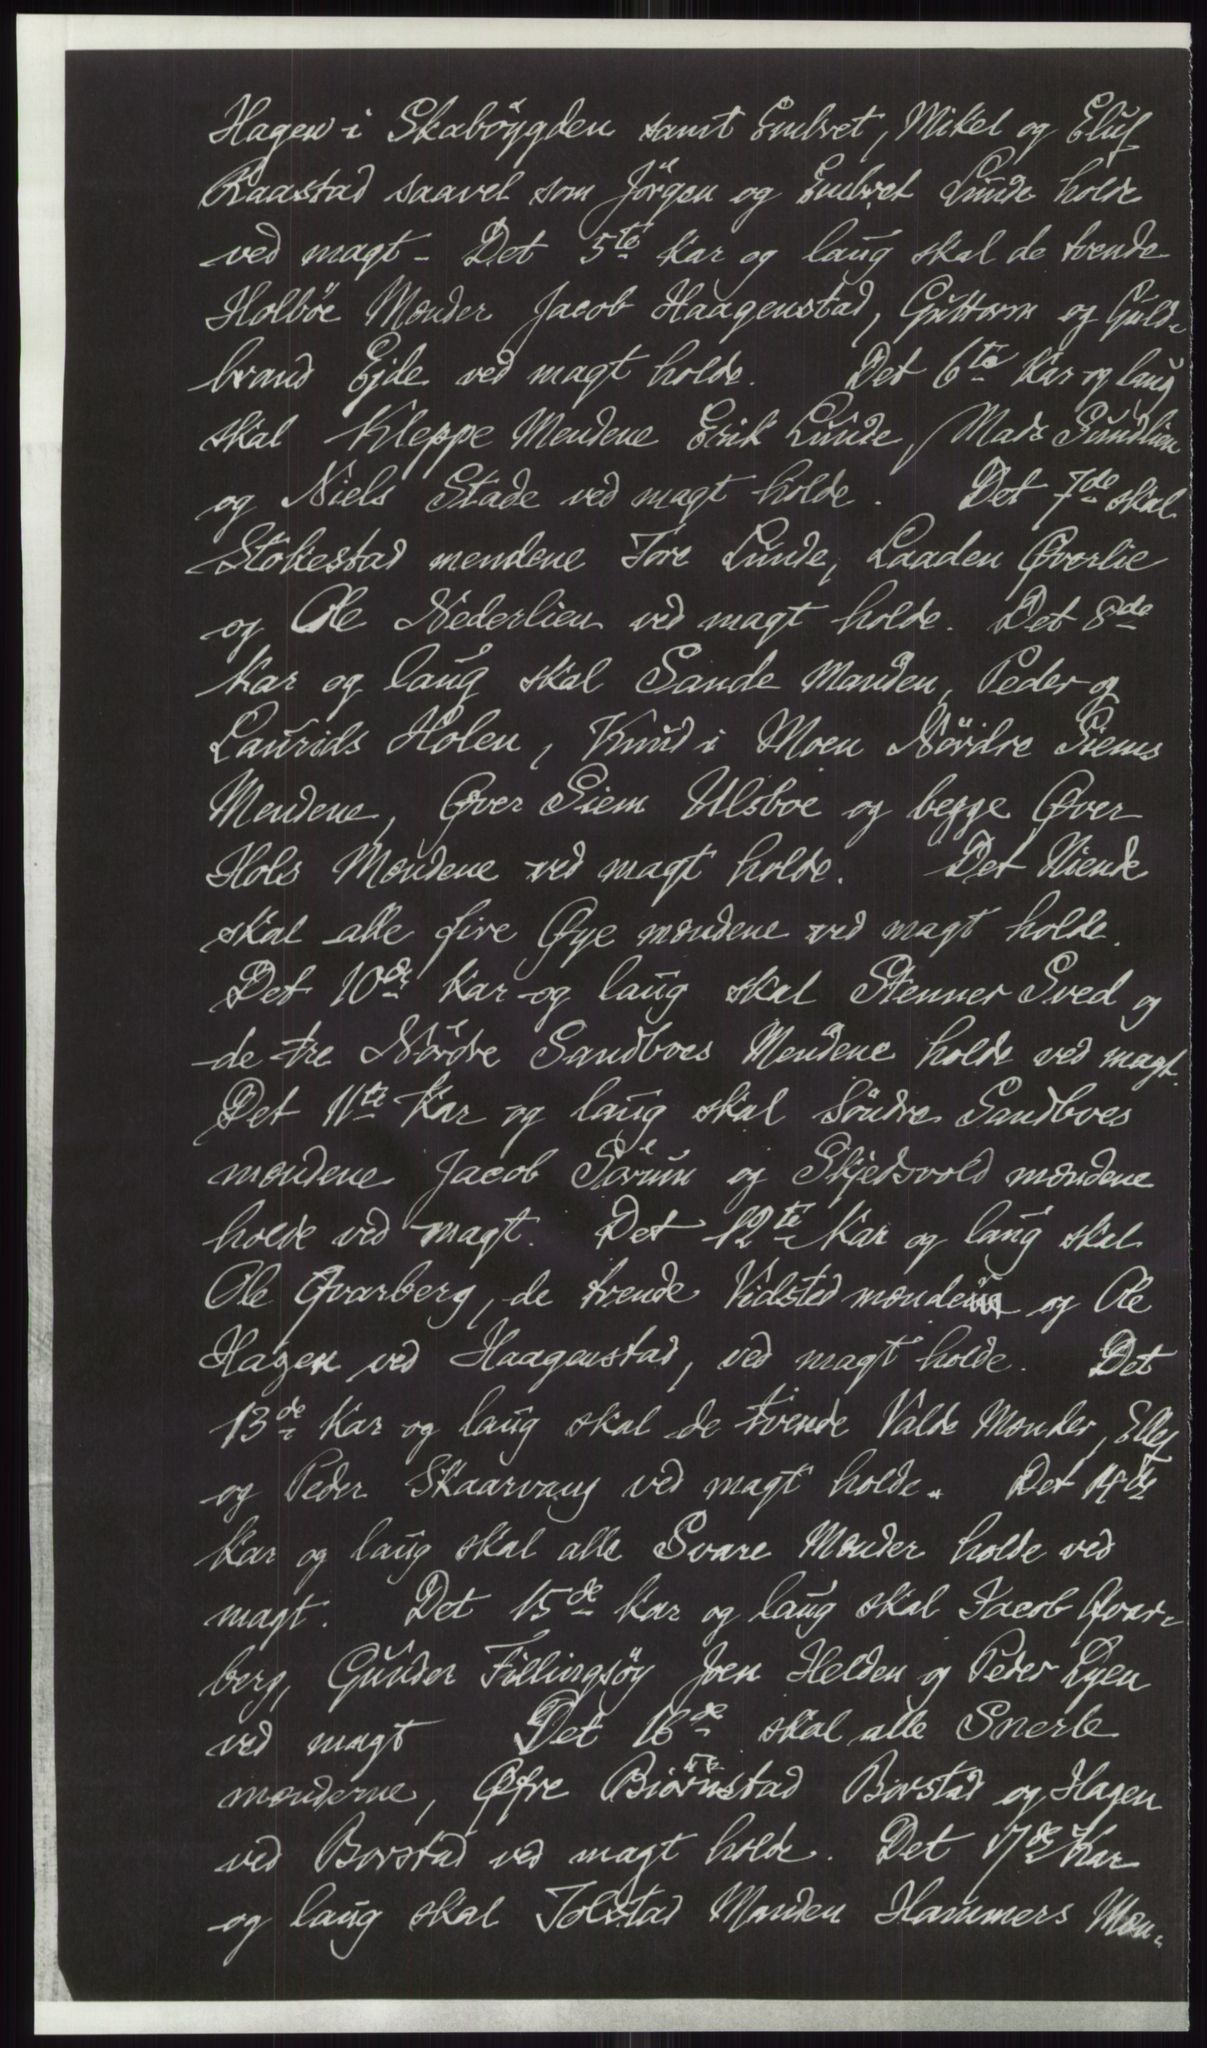 Hagen i Skabøygden samt Embret, Mikel og Eluf
Raastad saavel som Jörgen og Embret Lunde holde
ved magt - Det 5te Kar og laug skal de tvende
Holböe Mænder Jacob Haagenstad, Guttorm og Guld-
brand Ejde ved magt holde. Det 6te Kar og laug
skal Kleppe Mendene Erik Lunde, Mads Sundlien
og Niels Stade ved magt holde. Det 7de skal
Stokestad mendene Tore Lunde, Laaden Øverlie
og Ole Nederlien ved magt holde. Det 8de
Kar og laug skal Sande Manden, Peder og
Laurids Holen, Knud i Moen Nördre Siems
Mendene, Øver Siem Ulsboe og begge Øver
Hols Mændene ved magt holde. Det Niende
skal alle fire Øye mændene ved magt holde.
Det 10de Kar og laug skal Stenner Sved og
de tre Nördre Sandboes Mændene holde ved magt.
Det 11te Kar og laug skal Söndre Sandboes
mændene Jacob Sörum og Skjedsvold mændene
holde ved magt. Det 12te Kar og laug skal
Ole Qvarberg, de trende Vidsted mændene og Ole
Hagen ved Haagenstad, ved magt holde. Det
13de Kar og laug skal de tvende Valde Mænder, Ellef
og Peder Skaarvang ved magt holde. Det 14de
Kar og laug skal alle Svare Mænder holde ved
magt. Det 15de Kar og laug skal Jacob Qvar-
berg, Gunder Fillingsöy Joen Helden og Peder Dyen
ved magt Det 16de skal alle Snerle
mænderne, Øfre Biörnstad Borstad og Hagen
ved Borstad ved magt holde. Det 17de Kar
og laug skal Tolstad Manden Hammers Mæn-